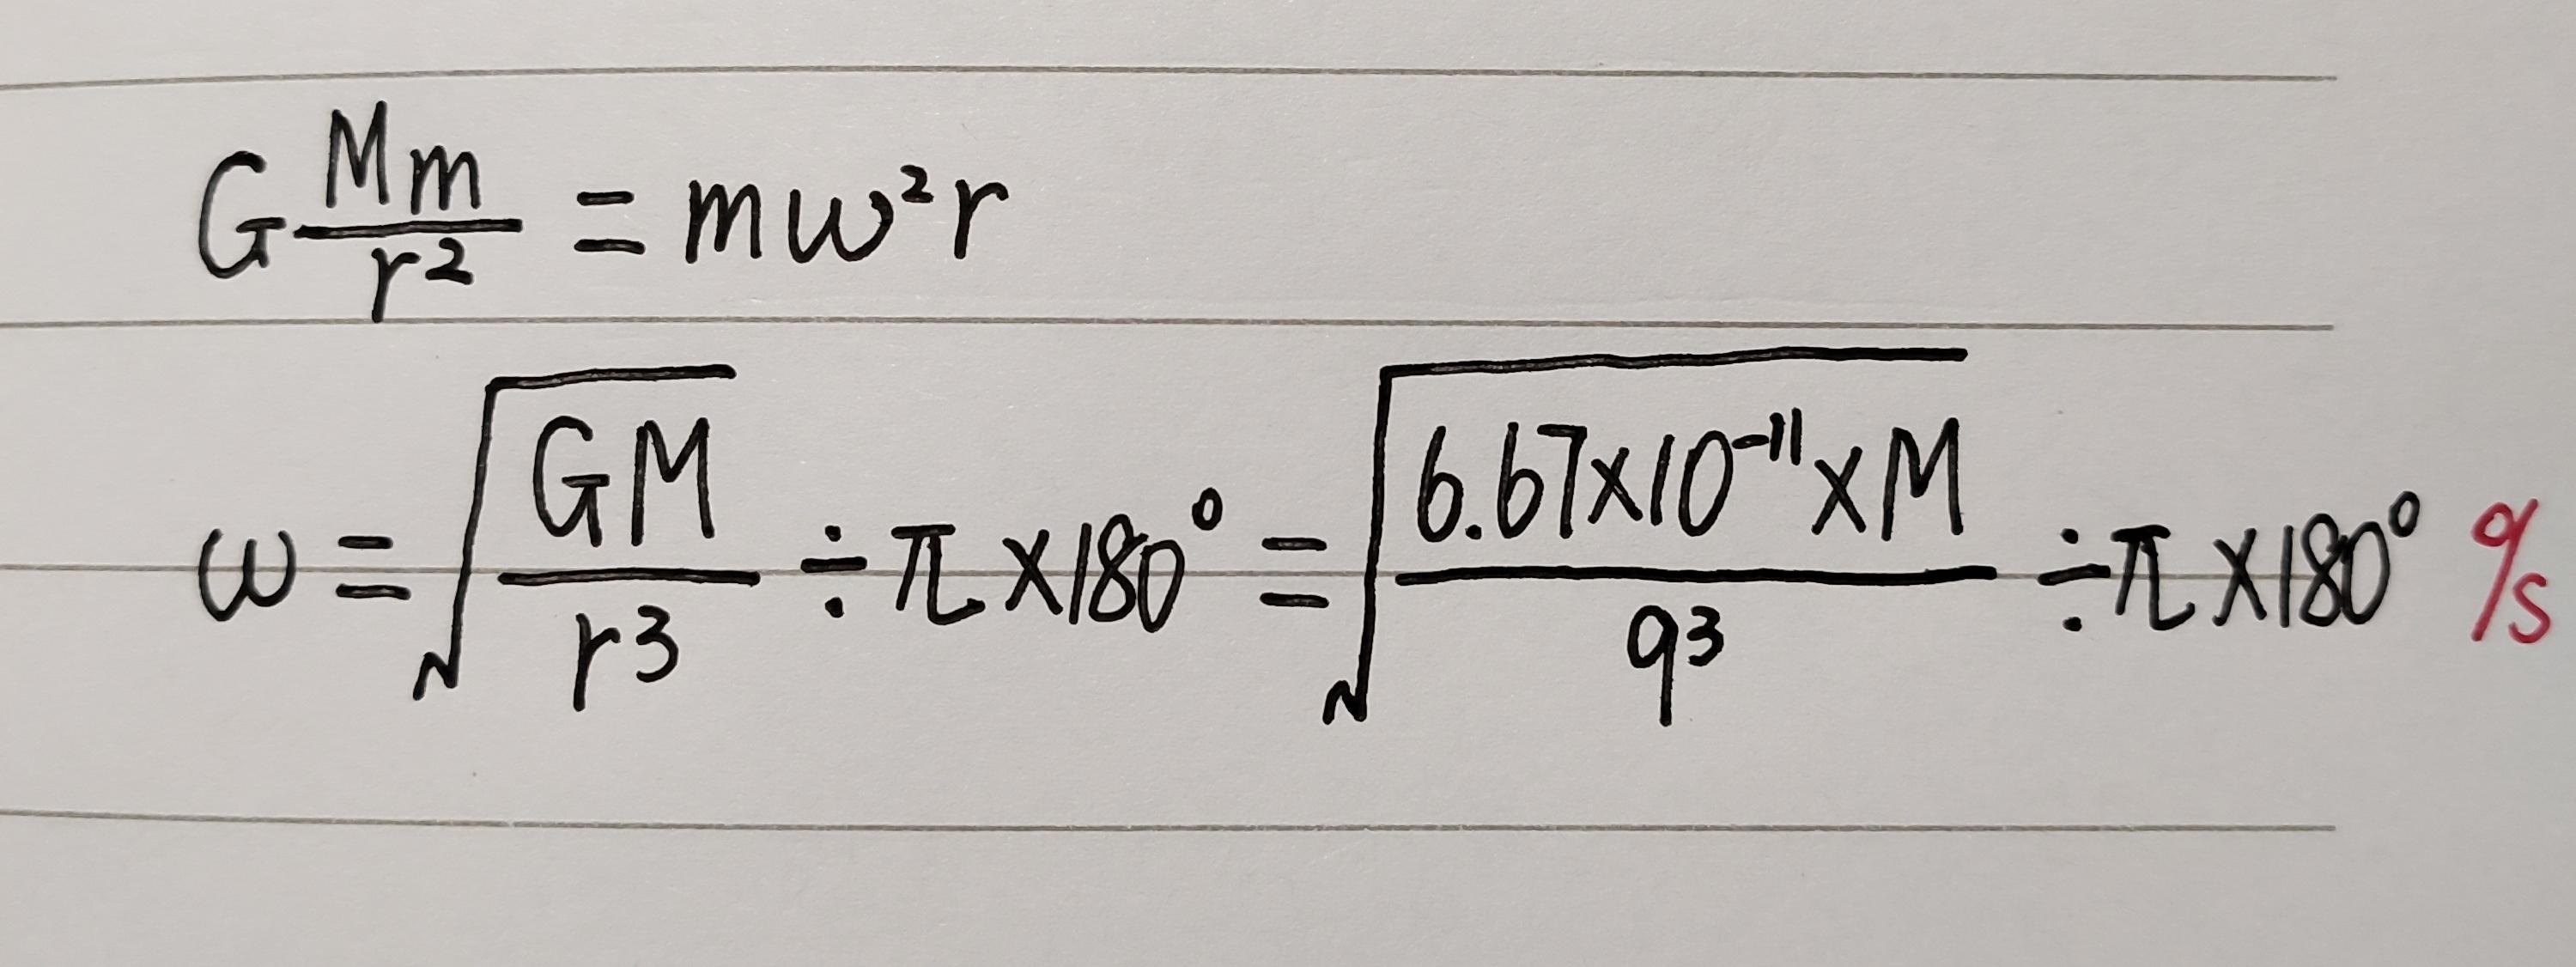 G Mm/r² = mω²r
ω = √(GM/r³) ÷ π × 180° = √(6.67×10⁻¹¹×M/q³) ÷ π × 180° °/s